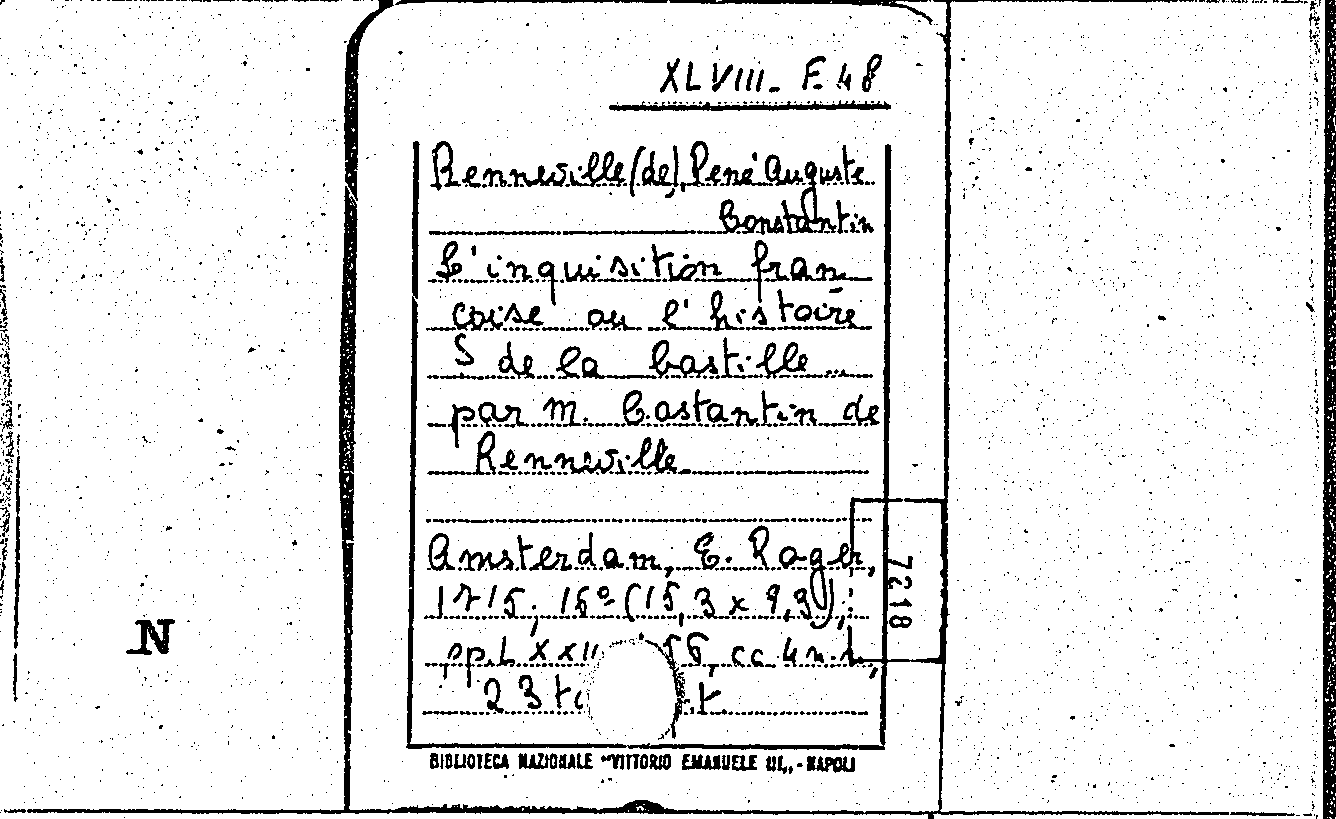 XLVIII. F. 48
Renneville (de), René Auguste
Constantin
L'inquisition fran
coise ou l'histoire
S de la bastille ...
par m. Costantin de
Renneville.
Amsterdam, E. Roger,
1715; 16º (15,3 x 9,9);
pp. L XXII 56, cc. 4 n.n.,
23
7218
N
BIBLIOTECA NAZIONALE "VITTORIO EMANUELE III„ - NAPOLI